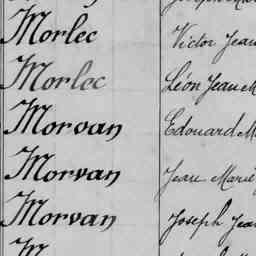 Morlec Victor Jean
Morlec Léon Jean M
Morvan Edouard M
Morvan Jean Marie
Morvan Joseph Jean